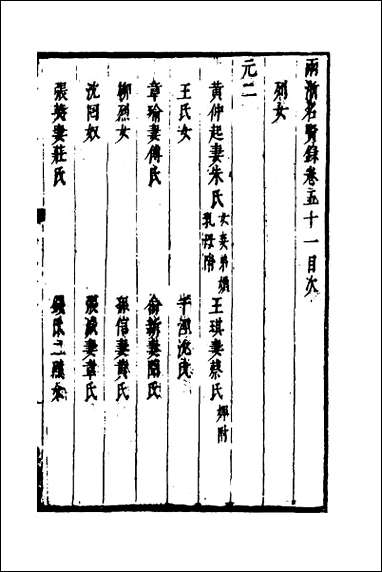 兩浙名賢錄卷五十一目次
烈女
元二
黃仲起妻朱氏 女妾弟婦乳母附 王琪妻蔡氏 婢附
王氏女 半河沈氏
章瑜妻傅氏 俞新妻聞氏
柳烈女 孫信妻黃氏
沈囘奴 張誠妻韋氏
張英妻莊氏 二烈女